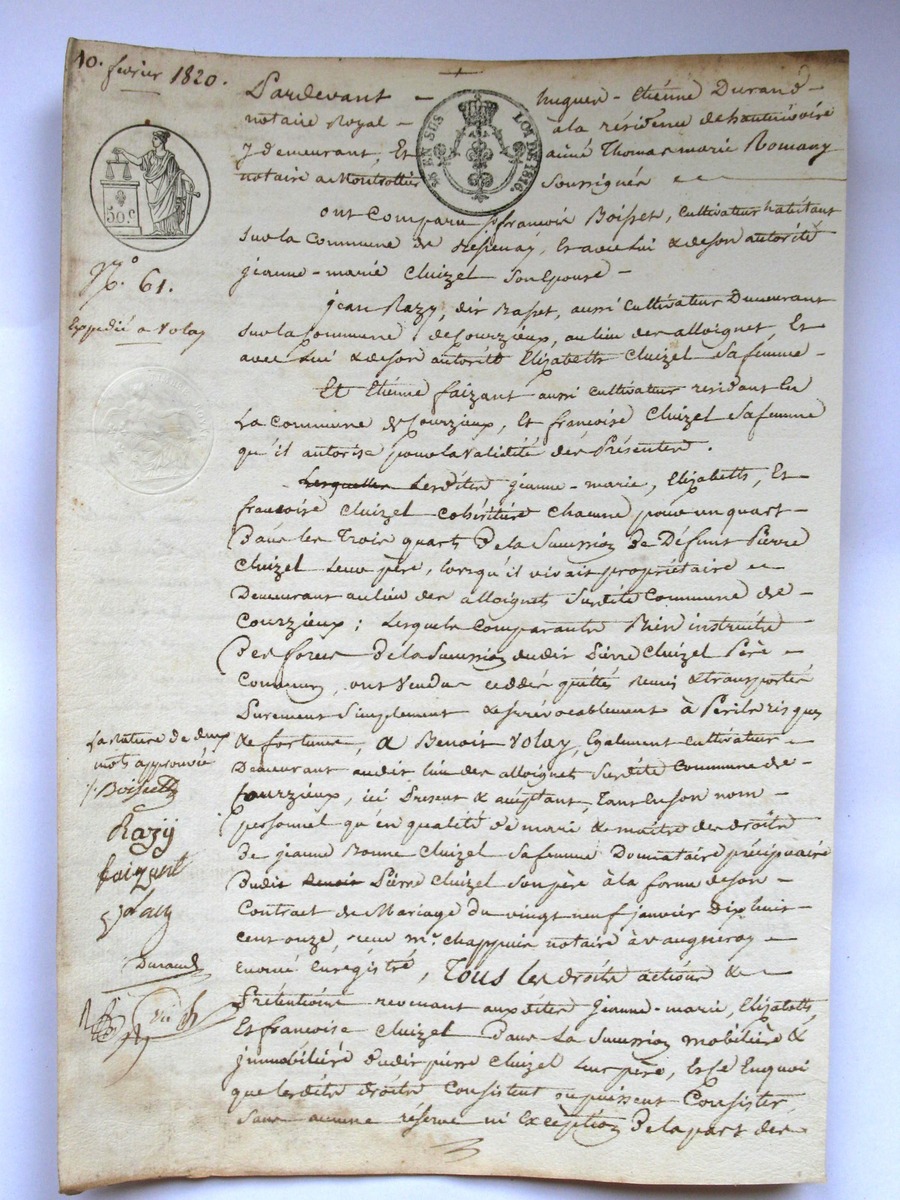 10. février 1820.
Pardevant - hugues - Etiénne Durand -
notaire Royal - à la résidence de hauterivoire
Ydemeurant, Et aimé Thomas marie Romany
notaire a Montrottier Soussignés
EN SUS LOI DE 1816.
50 c
ont Comparu françois Boisset, Cultivateur habitant
sur la Commune de, Et avec lui & de son autorité
jeanne-marie Cluizel Son Epouse -
N.o 61.
jean Razy, dit, aussi Cultivateur Demeurant
Expédié a Volay
sur la Commune de Courzieux, au lieu des alloignet, Et
avec Lui & de son autorité Elizabeth Cluizel Sa femme -
Et Etiénne faizant aussi cultivateur residant En
La Commune de Courzieux, Et françoise Cluizel Sa femme
qu'il autorise pour la validité des Présentes.
- Lesquelles Lesdites jeanne-marie, Elizabeth, Et
françoise Cluizel cohéritière Chacune pour un quart
Dans les Trois quarts De la Succession De Défunt Pierre
Cluizel Leur père, lorsqu'il vivait propriétaire
Demeurant au lieu des alloignet Susdite Commune de -
Courzieux; Lesquels Comparants Bien instruits
Des forces De la Succession dudit Pierre Cluizel Père -
Commun, ont Vendu cédé quitté remis & transporté
Purement Simplement & irrévocablement à Périls risques
La rature de deux
& fortunes, a Benoit Volay, Egalement cultivateur -
mots approuvée
Demeurant audit lieu des alloignet Susdite Commune de -
Boissett
Courzieux, ici Present & acceptant, Tant En son nom -
Razy
personnel qu'en qualité de mari & maître des droits
faizant
De jeanne Bonne Cluizel Sa femme Donnataire précipuaire
Volay
Dudit Benoit Pierre Cluizel Son père à la forme de son -
Contract de Mariage du vingt neuf janvier Dix huit
Durand
cent onze, reçu m.e Chappuis notaire à vaugneray -
Enregistré, Tous les droits actions &
Prétentions revenant auxdites Jeanne-marie, Elizabeth,
Et françoise Cluizel Dans La Succession mobilière &
jmmobilière dudit pierre Cluizel Leur père, En Ce En quoi
que lesdits droits Consistent ou puissent Consister,
Sans aucune réserve ni Exception De la part des